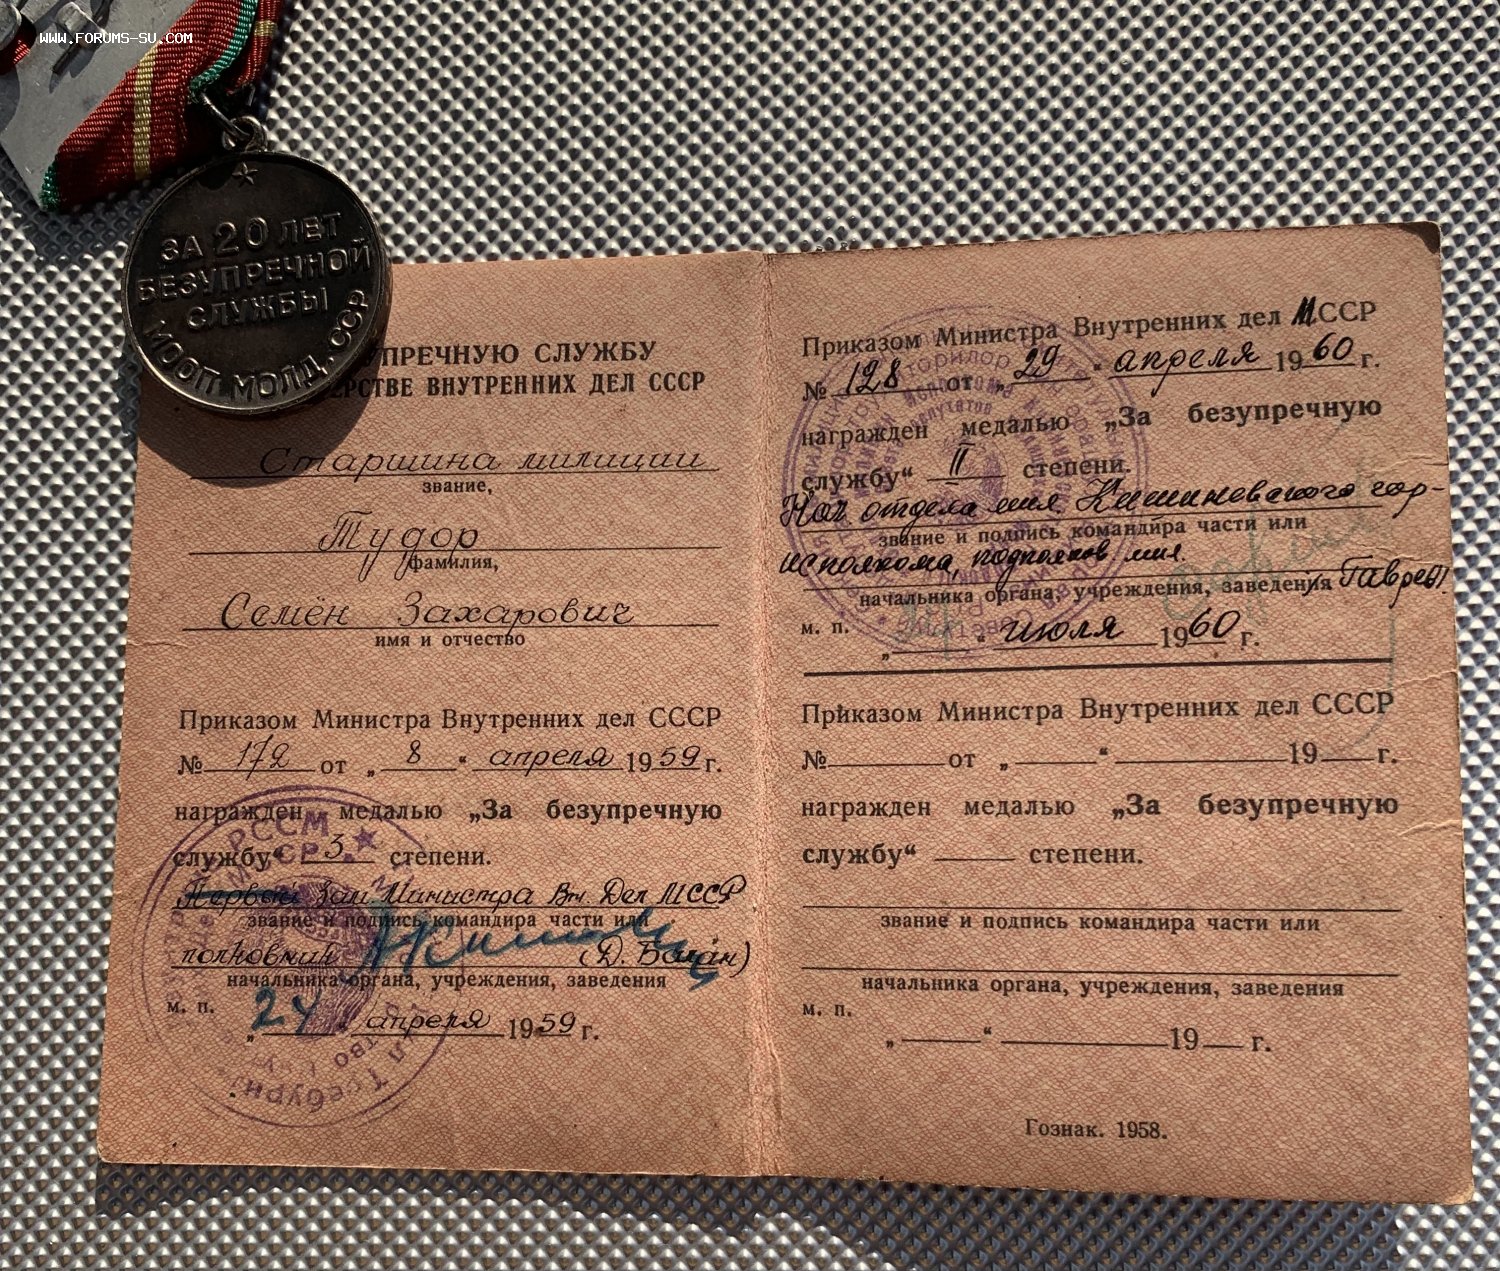 WWW.FORUMS-SU.COM
ЗА 20 ЛЕТ
БЕЗУПРЕЧНОЙ
СЛУЖБЫ
МООП МОЛД. ССР
УПРЕЧНУЮ СЛУЖБУ
ЕРСТВЕ ВНУТРЕННИХ ДЕЛ СССР
Старшина милиции
звание,
Тудор
фамилия,
Семён Захарович
имя и отчество
Приказом Министра Внутренних дел СССР
№ 172 от „ 8 “ апреля 1959 г.
награжден медалью „За безупречную
службу“ 3 степени.
Первый Зам Министра Вн. Дел МССР
звание и подпись командира части или
полковник (Д. Баган)
начальника органа, учреждения, заведения
м. п.
„ 24 “ апреля 1959 г.
РССМ
Приказом Министра Внутренних дел МССР
№ 128 от „ 29 “ апреля 1960 г.
награжден медалью „За безупречную
службу“ II степени.
Нач отдела мил. Кишиневского гор-
звание и подпись командира части или
исполкома, подполков мил.
начальника органа, учреждения, заведения
м. п.
„ “ июля 1960 г.
Приказом Министра Внутренних дел СССР
№ от „ “ 19 г.
награжден медалью „За безупречную
службу“ степени.
звание и подпись командира части или
начальника органа, учреждения, заведения
м. п.
„ “ 19 г.
Гознак. 1958.